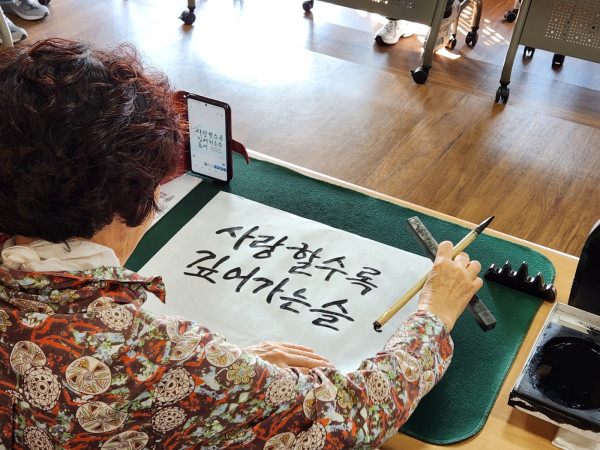 사랑할수록
깊어가는슬
사랑할수록
깊어가는슬